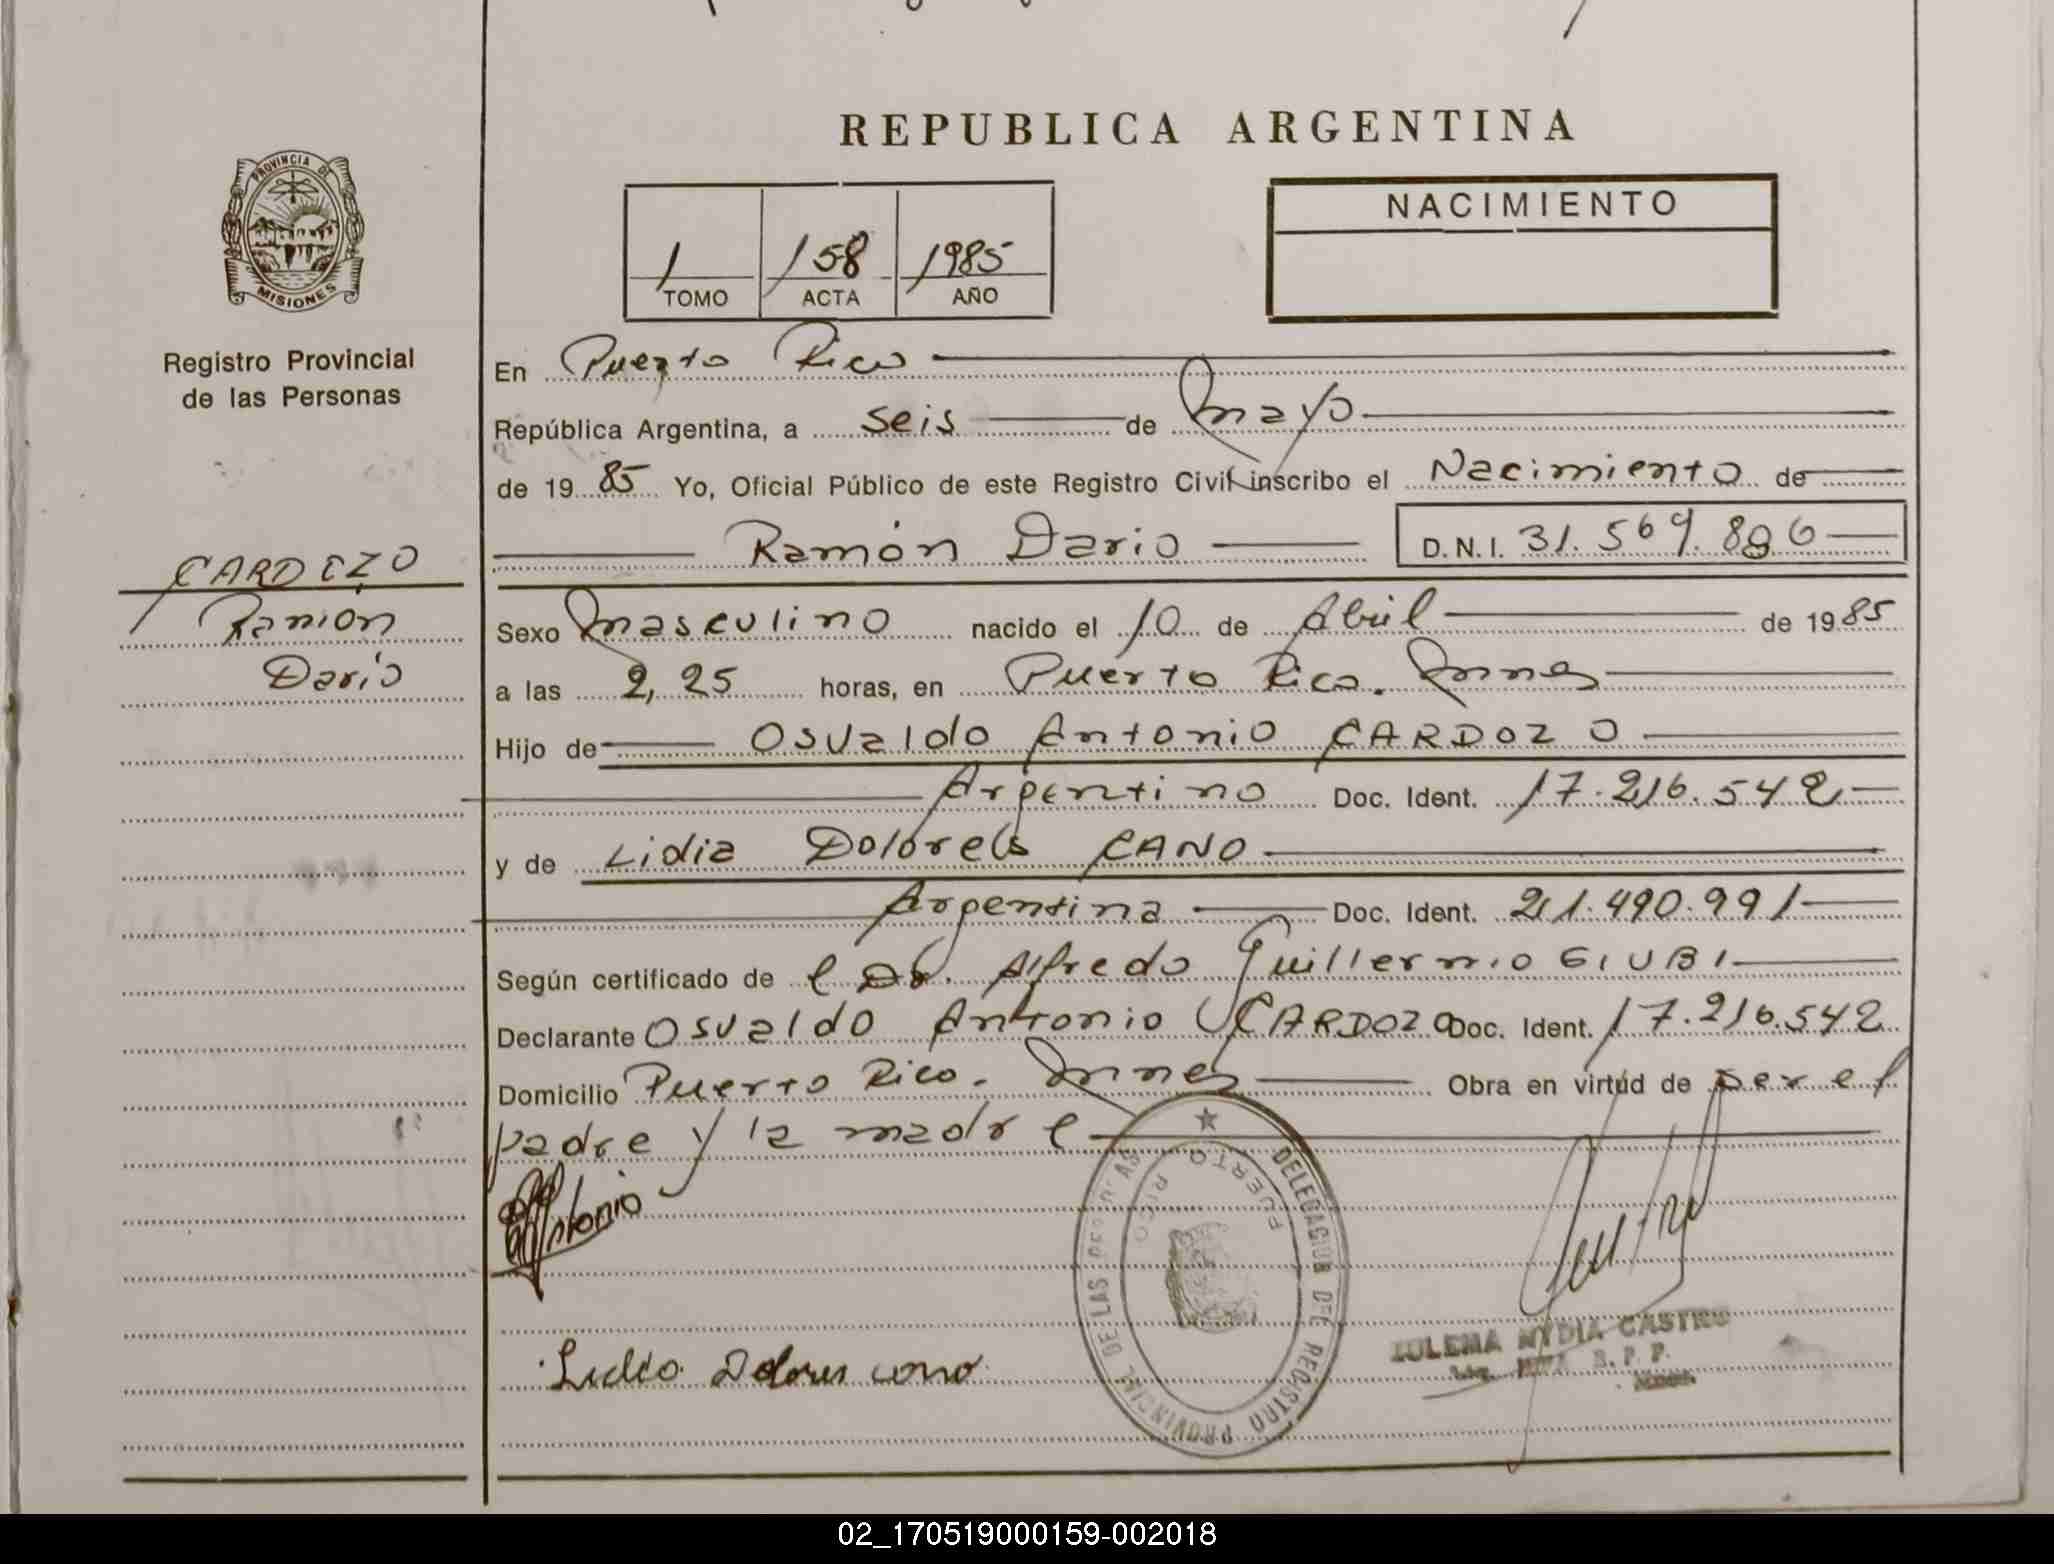 REPUBLICA ARGENTINA
PROVINCIA DE
MISIONES
Registro Provincial
de las Personas
1 158 1985
TOMO ACTA AÑO
NACIMIENTO
En Puerto Rico
República Argentina, a seis de mayo
de 19 85 Yo, Oficial Público de este Registro Civil inscribo el Nacimiento de
Ramón Dario D.N.I. 31.569.886
CARDOZO
Ramón
Darío
Sexo masculino nacido el 10 de Abril de 1985
a las 2,25 horas, en Puerto Rico. Mnes
Hijo de Osvaldo Antonio CARDOZO
Argentino Doc. Ident. 17.216.542
y de Lidia Dolores CANO
Argentina Doc. Ident. 21.490.991
Según certificado de l Dr. Alfredo Guillermo GIUBI
Declarante Osvaldo Antonio CARDOZO Doc. Ident. 17.216.542
Domicilio Puerto Rico. Mnes Obra en virtud de ser el
padre y la madre
Antonio
DELEGACION DE REGISTRO PROVINCIAL DE LAS PERSONAS
PUERTO RICO
Lidia Dolores cano
ZULEMA NYDIA CASTRO
02_170519000159-002018